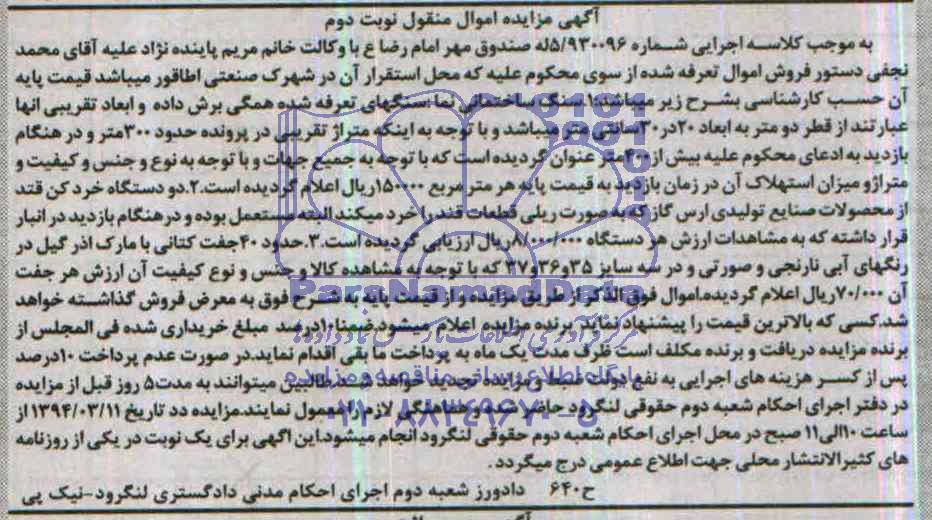 آگهی مزایده اموال منقول نوبت دوم
به موجب کلاسه اجرایی شماره ۵/۹۳۰۰۹۶له صندوق مهر امام رضا ع با وکالت خانم مریم پاینده نژاد علیه آقای محمد
نجفی دستور فروش اموال تعرفه شده از سوی محکوم علیه که محل استقرار آن در شهرک صنعتی اطاقور میباشد قیمت پایه
آن حسب کارشناسی بشرح زیر میباشد:۱.سنگ ساختمانی نما:سنگهای تعرفه شده همگی برش داده و ابعاد تقریبی انها
عبارتند از قطر دو متر به ابعاد ۲۰در۳۰سانتی متر میباشد و با توجه به اینکه متراژ تقریبی در پرونده حدود ۳۰۰متر و در هنگام
بازدید به ادعای محکوم علیه بیش از۴۰۰متر عنوان گردیده است که با توجه به جمیع جهات و با توجه به نوع و جنس و کیفیت و
متراژو میزان استهلاک آن در زمان بازدید به قیمت پایه هر متر مربع ۱۵۰۰۰۰ریال اعلام گردیده است.۲.دو دستگاه خرد کن قتد
از محصولات صنایع تولیدی ارس گاز که به صورت ریلی قطعات قند را خرد میکند البته مستعمل بوده و در هنگام بازدید در انبار
قرار داشته که به مشاهدات ارزش هر دستگاه ۸/۰۰۰/۰۰۰ریال ارزیابی گردیده است.۳.حدود ۴۰جفت کتانی با مارک اذر گیل در
رنگهای آبی نارنجی و صورتی و در سه سایز ۳۵و۳۶و۳۷ که با توجه به مشاهده کالا و جنس و نوع کیفیت آن ارزش هر جفت
آن ۷۰/۰۰۰ریال اعلام گردیده.اموال فوق الذکر از طریق مزایده و از قیمت پایه به شرح فوق به معرض فروش گذاشته خواهد
شد.کسی که بالاترین قیمت را پیشنهاد نماید برنده مزایده اعلام میشود.ضمنا۱۰درصد مبلغ خریداری شده فی المجلس از
برنده مزایده دریافت و برنده مکلف است ظرف مدت یک ماه به پرداخت ما بقی اقدام نماید.در صورت عدم پرداخت ۱۰درصد
پس از کسر هزینه های اجرایی به نفع دولت ضبط و مزایده تجدید خواهد شد.طالبین میتوانند به مدت۵ روز قبل از مزایده
در دفتر اجرای احکام شعبه دوم حقوقی لنگرود حاضر شده و هماهنگی لازم را معمول نمایند.مزایده دد تاریخ ۱۳۹۴/۰۳/۱۱ از
ساعت ۱۰الی۱۱ صبح در محل اجرای احکام شعبه دوم حقوقی لنگرود انجام میشود.این اگهی برای یک نوبت در یکی از روزنامه
های کثیرالانتشار محلی جهت اطلاع عمومی درج میگردد.
ح۶۴۰ دادورز شعبه دوم اجرای احکام مدنی دادگستری لنگرود-نیک پی
ParsNamadData
پایگاه اطلاع رسانی مناقصه و مزایده
۰۲۱-۸۸۳۴۹۶۷۰-۵